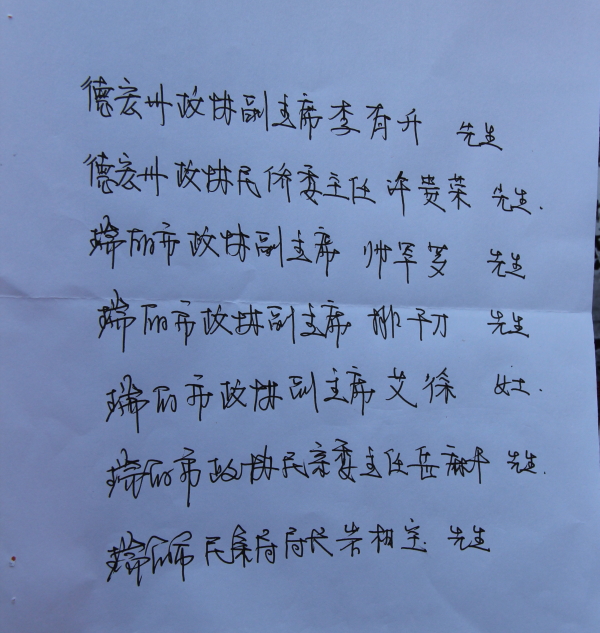 德宏州政协副主席李有升 先生
德宏州政协民侨委主任许贵荣 先生.
瑞丽市政协副主席 帅罕 先生
瑞丽市政协副主席 先生
瑞丽市政协副主席艾徐 女士.
瑞丽市政协民宗委主任岳麻 先生.
瑞丽市民宗局局长岩相宝 先生